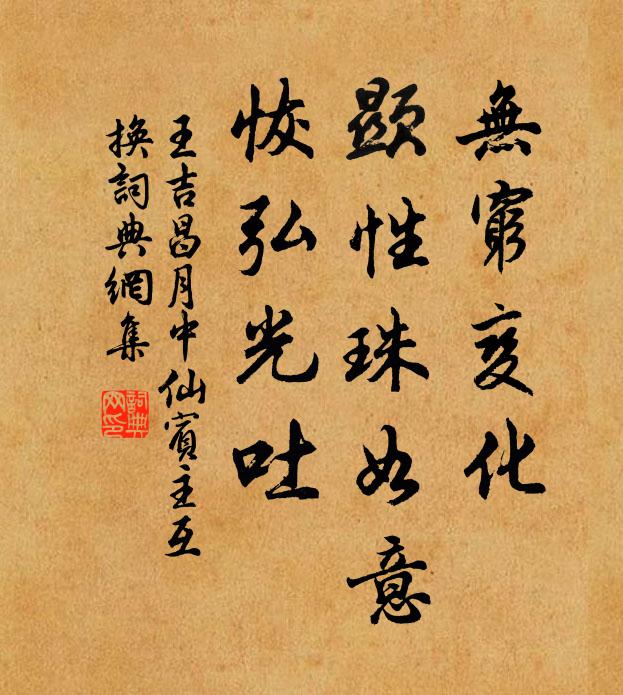 無窮变化
顯性珠如意
恢弘光吐
王吉昌月中仙賓主互
換詞典網集
詞典
网印